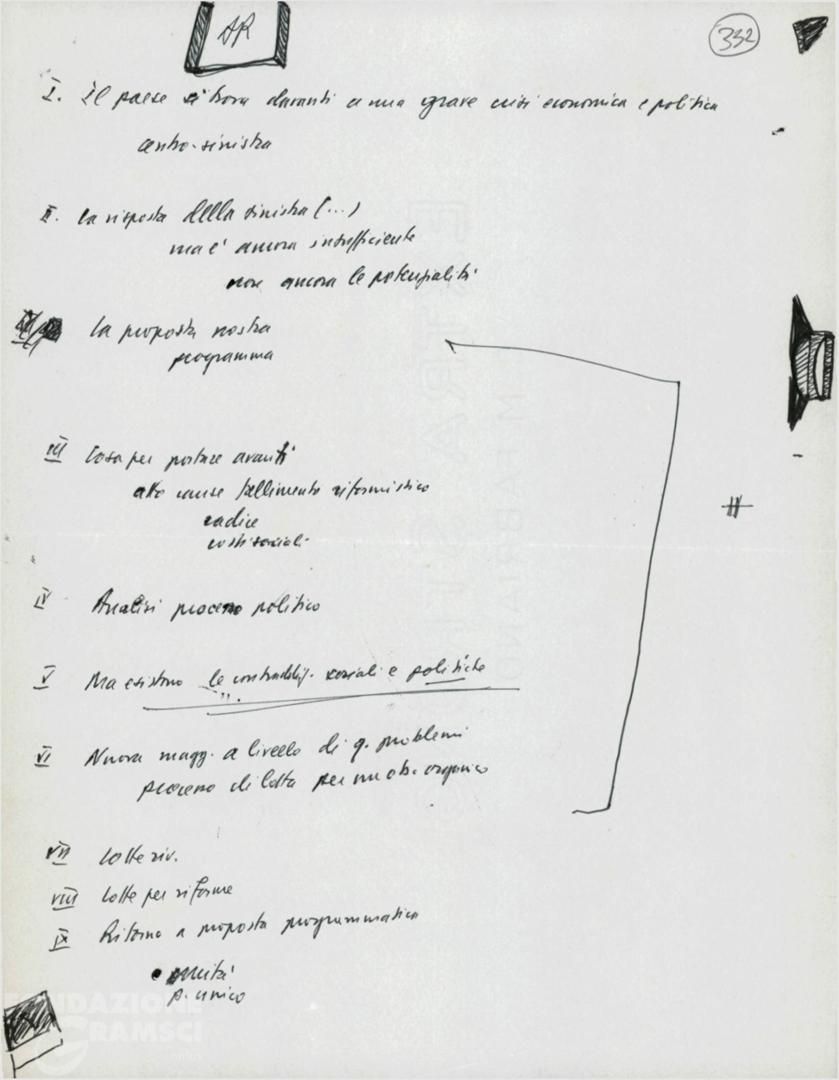 AR
332
I. Il paese si trova davanti a una grave crisi economica e politica
centro-sinistra
II. La risposta della sinistra (...)
ma è ancora insufficiente
non ancora le potenzialità
La proposta nostra
programma
III Cosa per portare avanti
alto cause fallimento riformistico
radice
costi sociali
IV Analisi processo politico
V Ma esistono le contraddiz. sociali e politiche
VI Nuova magg. a livello di q. problemi
processo di lotta per un organico
VII Lotte riv.
VIII Lotte per riforme
IX Ritorno a proposta programmatica
unità
p. unico
FONDAZIONE
GRAMSCI
onlus